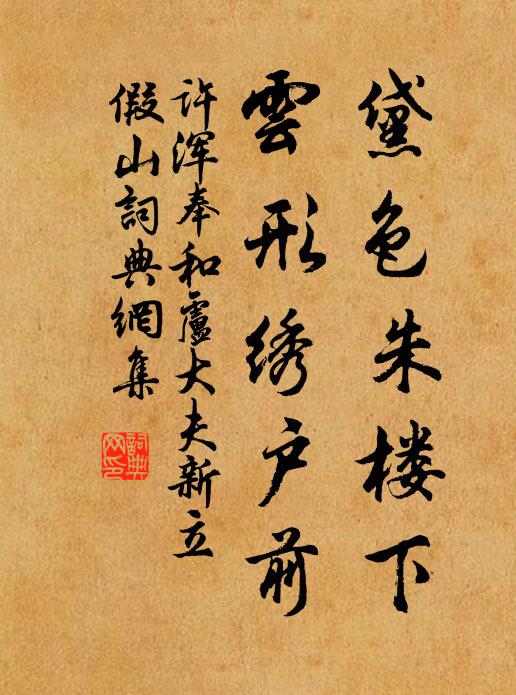 黛色朱楼下
雲形绣户前
许渾奉和盧大夫新立
假山詞典網集
詞典网印